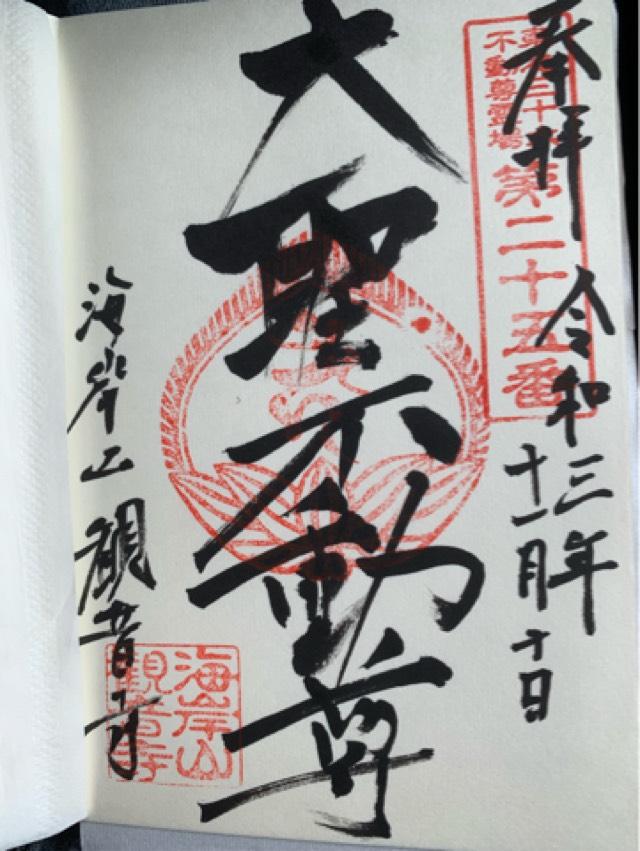 奉拝
令和三年
十一月十日
不動尊霊場
第二十五番
大聖不動尊
海岸山観音寺
海岸山
観音寺